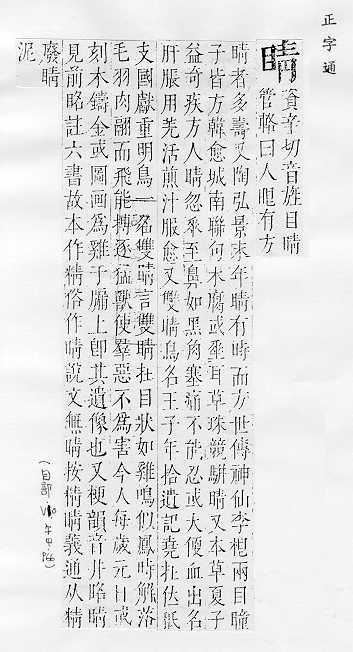 正字通
睛 資辛切音旌目睛
管輅曰人眡有方
睛者多壽又陶弘景末年睛有時而方世傳神仙李根兩目瞳
子皆方韓愈城南聯句木腐或垂耳草珠競駢睛又本草夏子
益奇疾方人睛忽垂至鼻如黑角塞痛不能忍或大便血出名
肝脹用羌活煎汁服愈又雙睛鳥名王子年拾遺記堯在位祇
支國獻重明鳥一名雙睛言雙睛在目狀如雞鳴似鳳時解落
毛羽肉翮而飛能搏逐猛獸使羣惡不爲害今人每歲元日或
刻木鑄金或圖畫爲雞于牖上卽其遺像也又梗韻音井䀴睛
見前䀴註六書故本作精俗作睛說文無睛按精睛義通从精
廢睛
泥
(目部